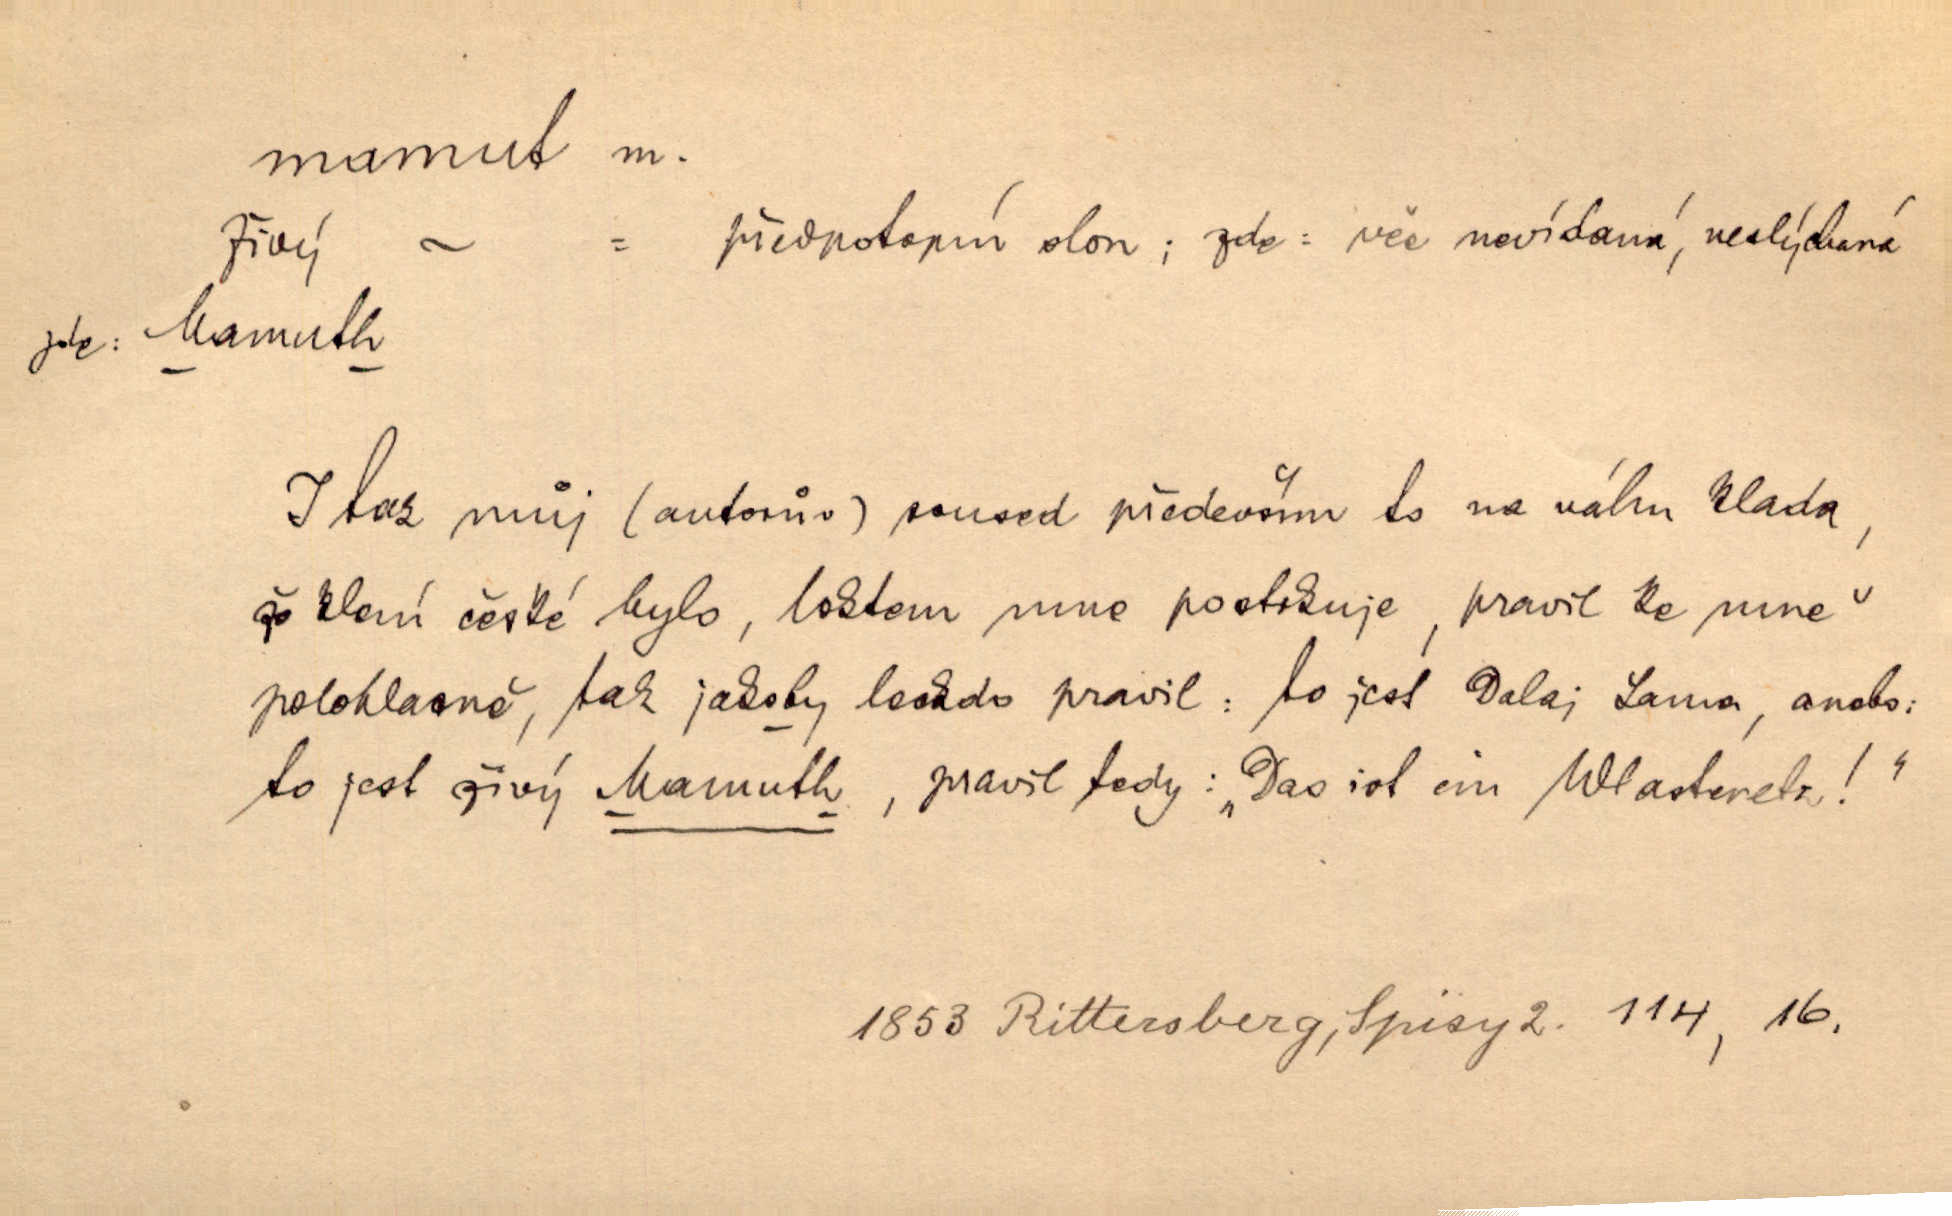 mamut m.
živý ~ = předpotopní slon; zde = věc nevídaná, neslýchaná
zde: Mamuth
I tak můj (autorův) soused především to na váhu klada,
že klení české bylo, loktem mne postrkuje, pravil ke mně
polohlasně, tak jakoby leckdo pravil: to jest Dalaj Lama, anebo:
to jest živý Mamuth, pravil tedy: „Das ist ein Wlastenetz!“
1853 Rittersberg, Spisy 2. 114, 16.